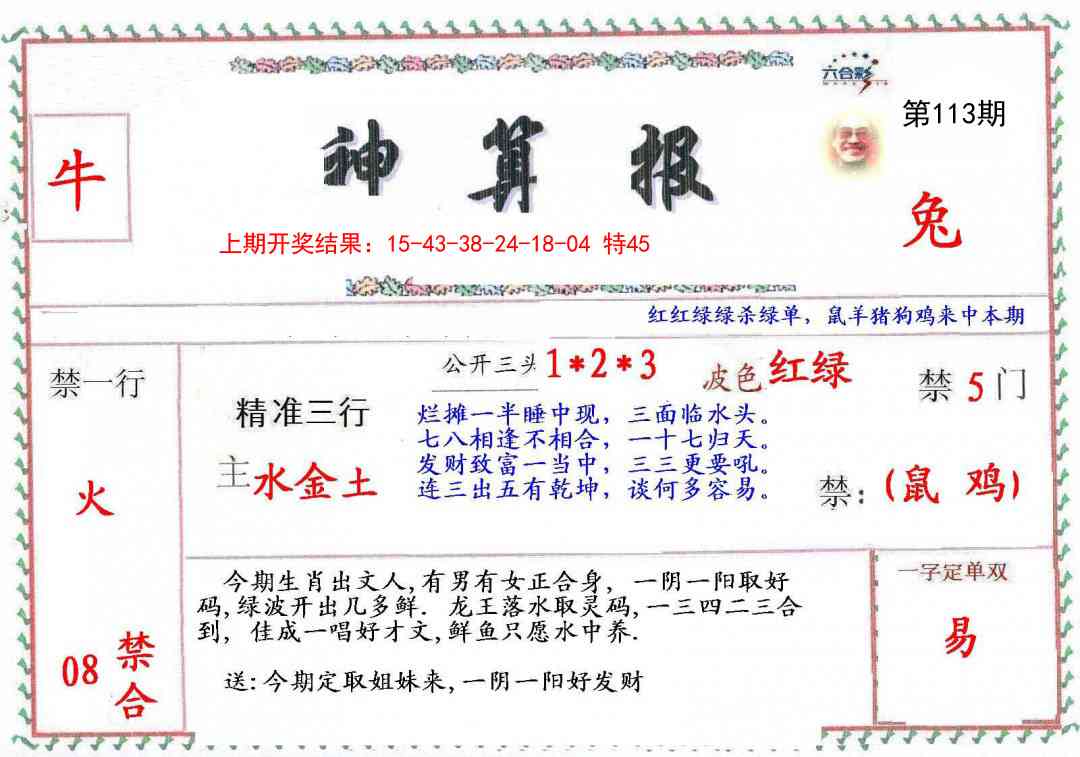 六合彩
第113期
牛
神算报
兔
上期开奖结果：15-43-38-24-18-04 特45
红红绿绿杀绿单，鼠羊猪狗鸡来中本期
禁一行
公开三头 1*2*3
波色 红绿
禁 5 门
精准三行
烂摊一半睡中现，三面临水头。
七八相逢不相合，一十七归天。
发财致富一当中，三三更要吼。
连三出五有乾坤，谈何多容易。
主 水金土
禁：(鼠 鸡)
火
今期生肖出文人,有男有女正合身, 一阴一阳取好
码,绿波开出几多鲜. 龙王落水取灵码,一三四二三合
到, 佳成一唱好才文,鲜鱼只愿水中养.
送:今期定取姐妹来,一阴一阳好发财
一字定单双
易
08 禁合